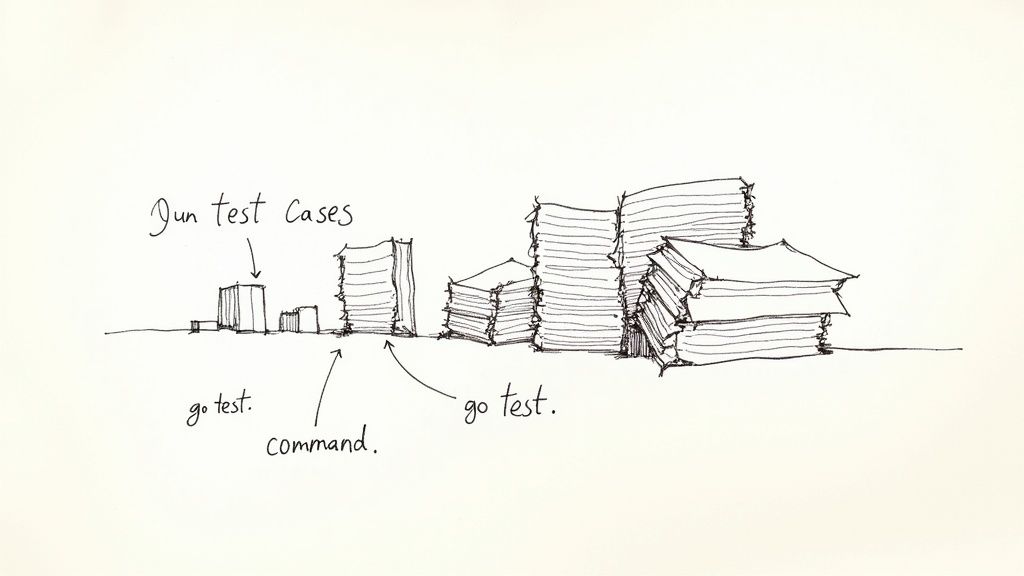 Jun test cases
go test.
go test.
command.